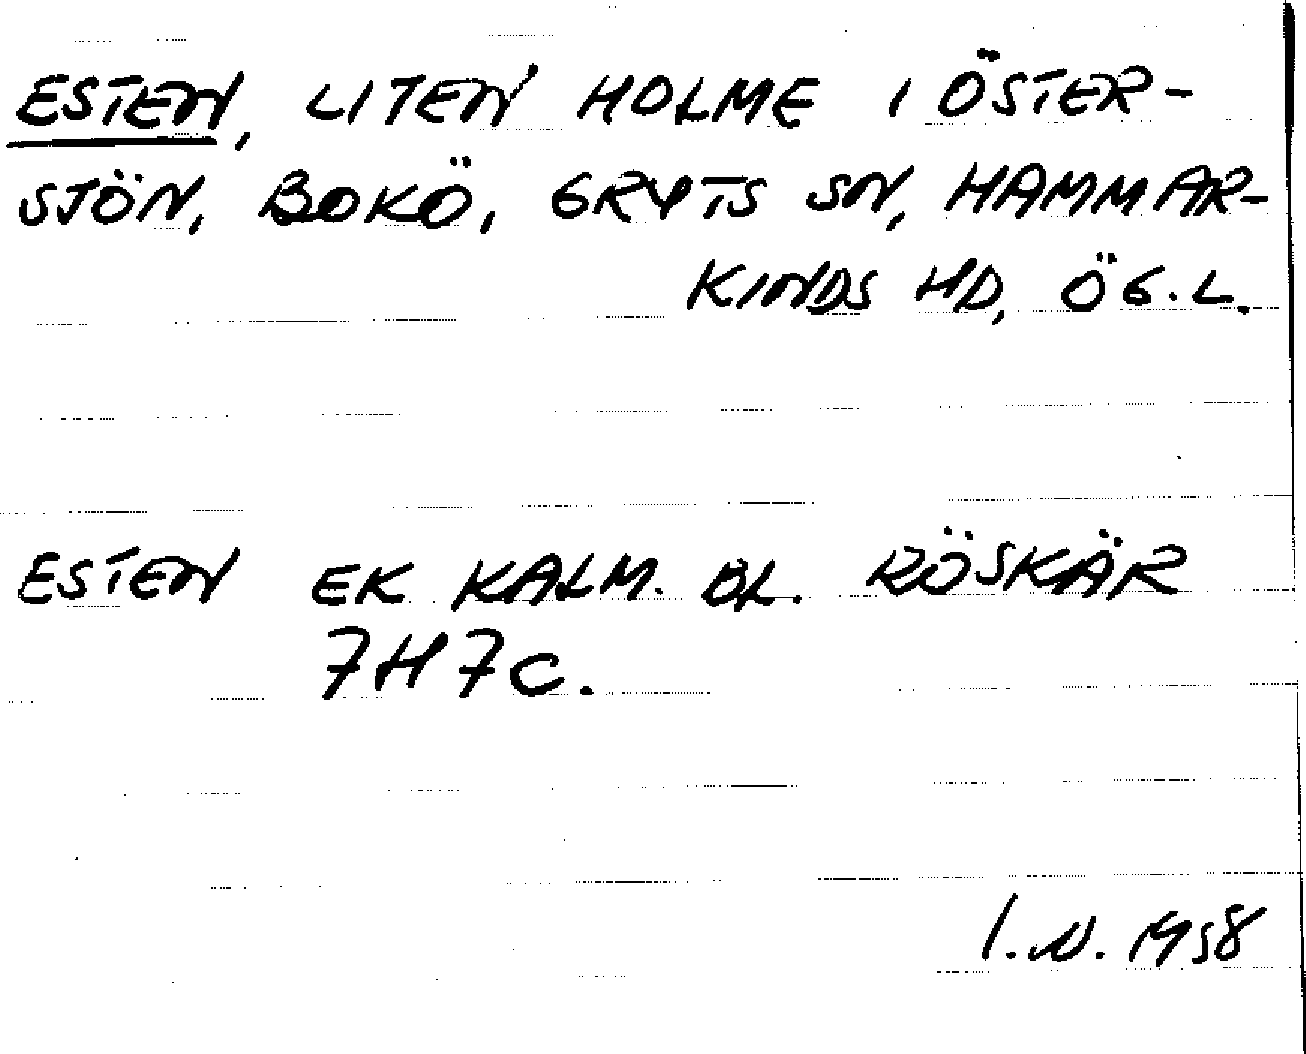 ESTEN, LITEN HOLME I ÖSTER-
SJÖN, BOKÖ, GRYTS SN, HAMMAR-
KINDS HD, ÖG.L.
ESTEN EK KALM. BL. RÖSKÄR
7H7C.
I.N. 1958